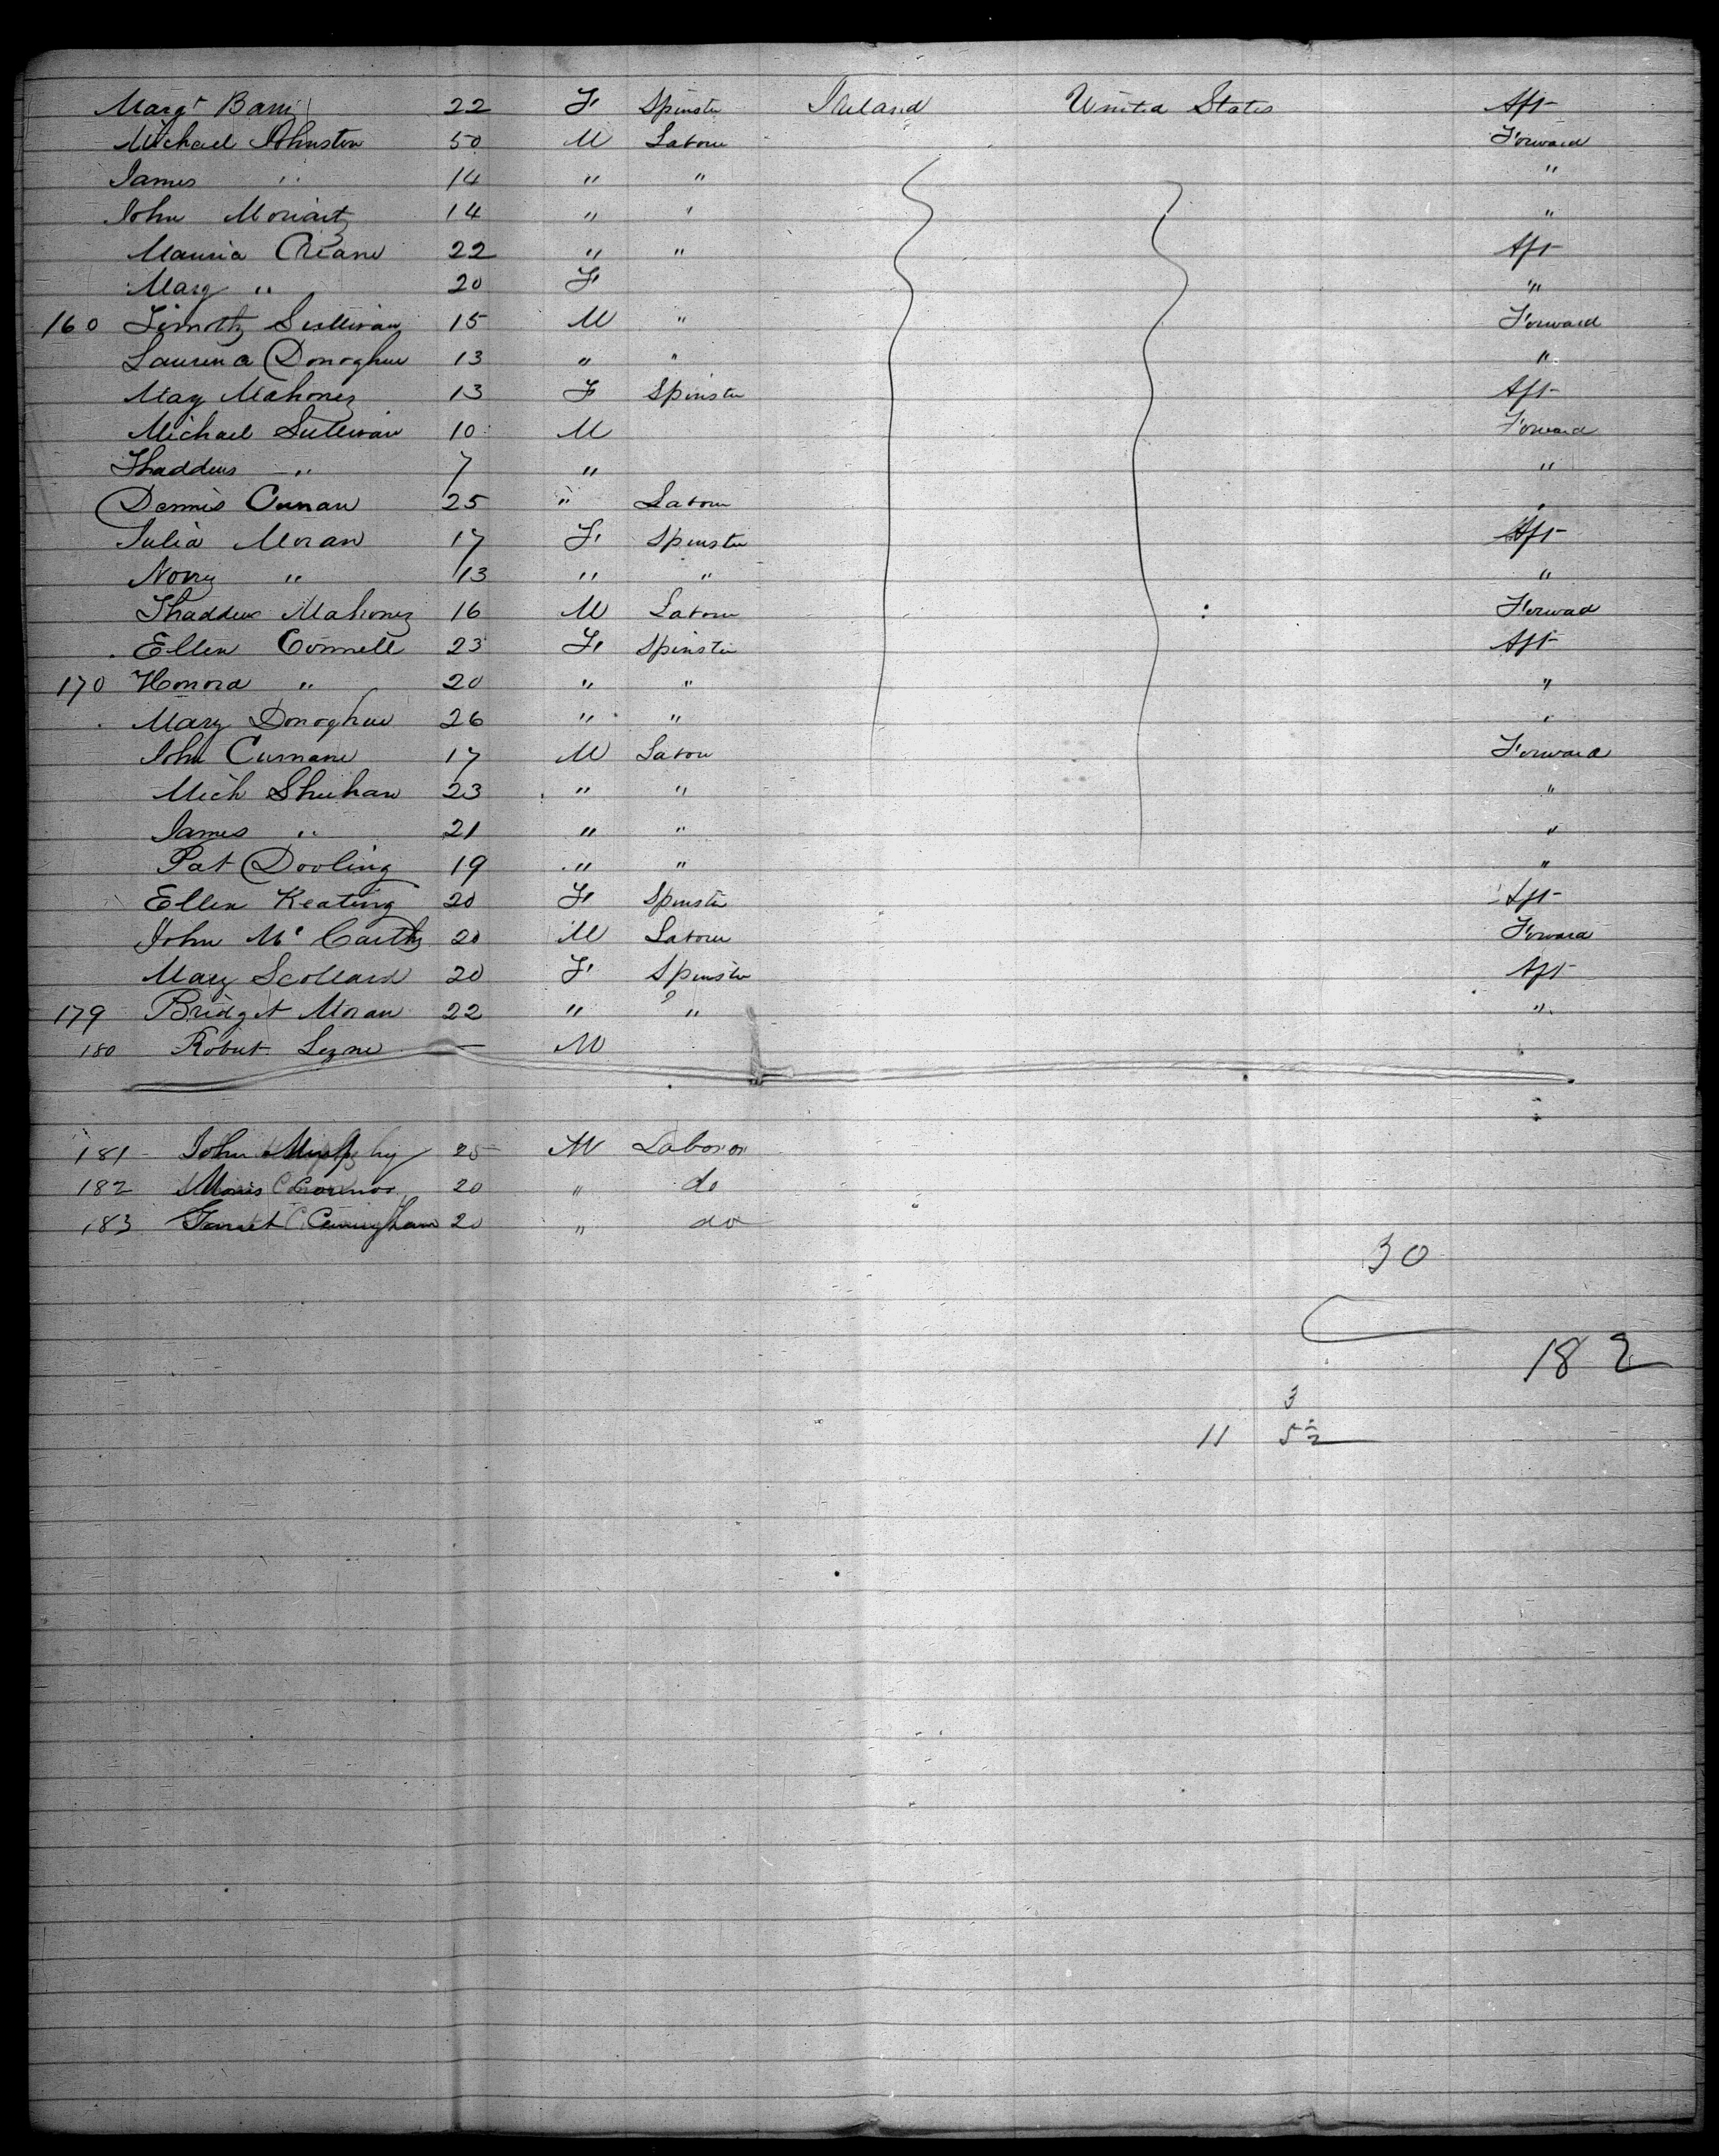 Margt Barry 22 F Spinster Ireland United States Aft
Michael Johnston 50 M Labour Forward
James " 14 " " "
John Moriarty 14 " " "
Maurice Creane 22 " " Aft
Mary " 20 F "
160 Timothy Sullivan 15 M " Forward
Laurence Donoghue 13 " " "
May Mahoney 13 F Spinster Aft
Michael Sullivan 10 M Forward
Thaddeus " 7 " "
Dennis Cunan 25 " Labour "
Julia Moran 17 F Spinster Aft
Norry " 13 " " "
Thaddeus Mahoney 16 M Labour Forward
Ellen Connell 23 F Spinster Aft
170 Honora " 20 " " "
Mary Donoghue 26 " " "
John Curnane 17 M Labour Forward
Mich Sheehan 23 " " "
James " 21 " " "
Pat Dooling 19 " " "
Ellen Keating 20 F Spinster Aft
John McCarthy 20 M Labour Forward
Mary Scollard 20 F Spinster Aft
179 Bridget Moran 22 " " "
180 Robert Leyne — M
181 John Murphy 25 M Laboror
182 Moris Connor 20 " do
183 Garret Cunningham 20 " do
30
182
3
11 52